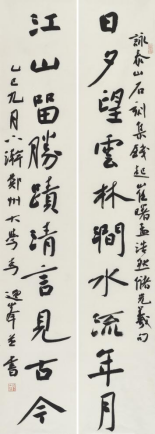 詠泰山石刻集錢起崔曙孟浩然儲光羲句
日夕望雲林澗水流年月
江山留勝蹟清言見古今
乙巳九月 鄭州大學 書